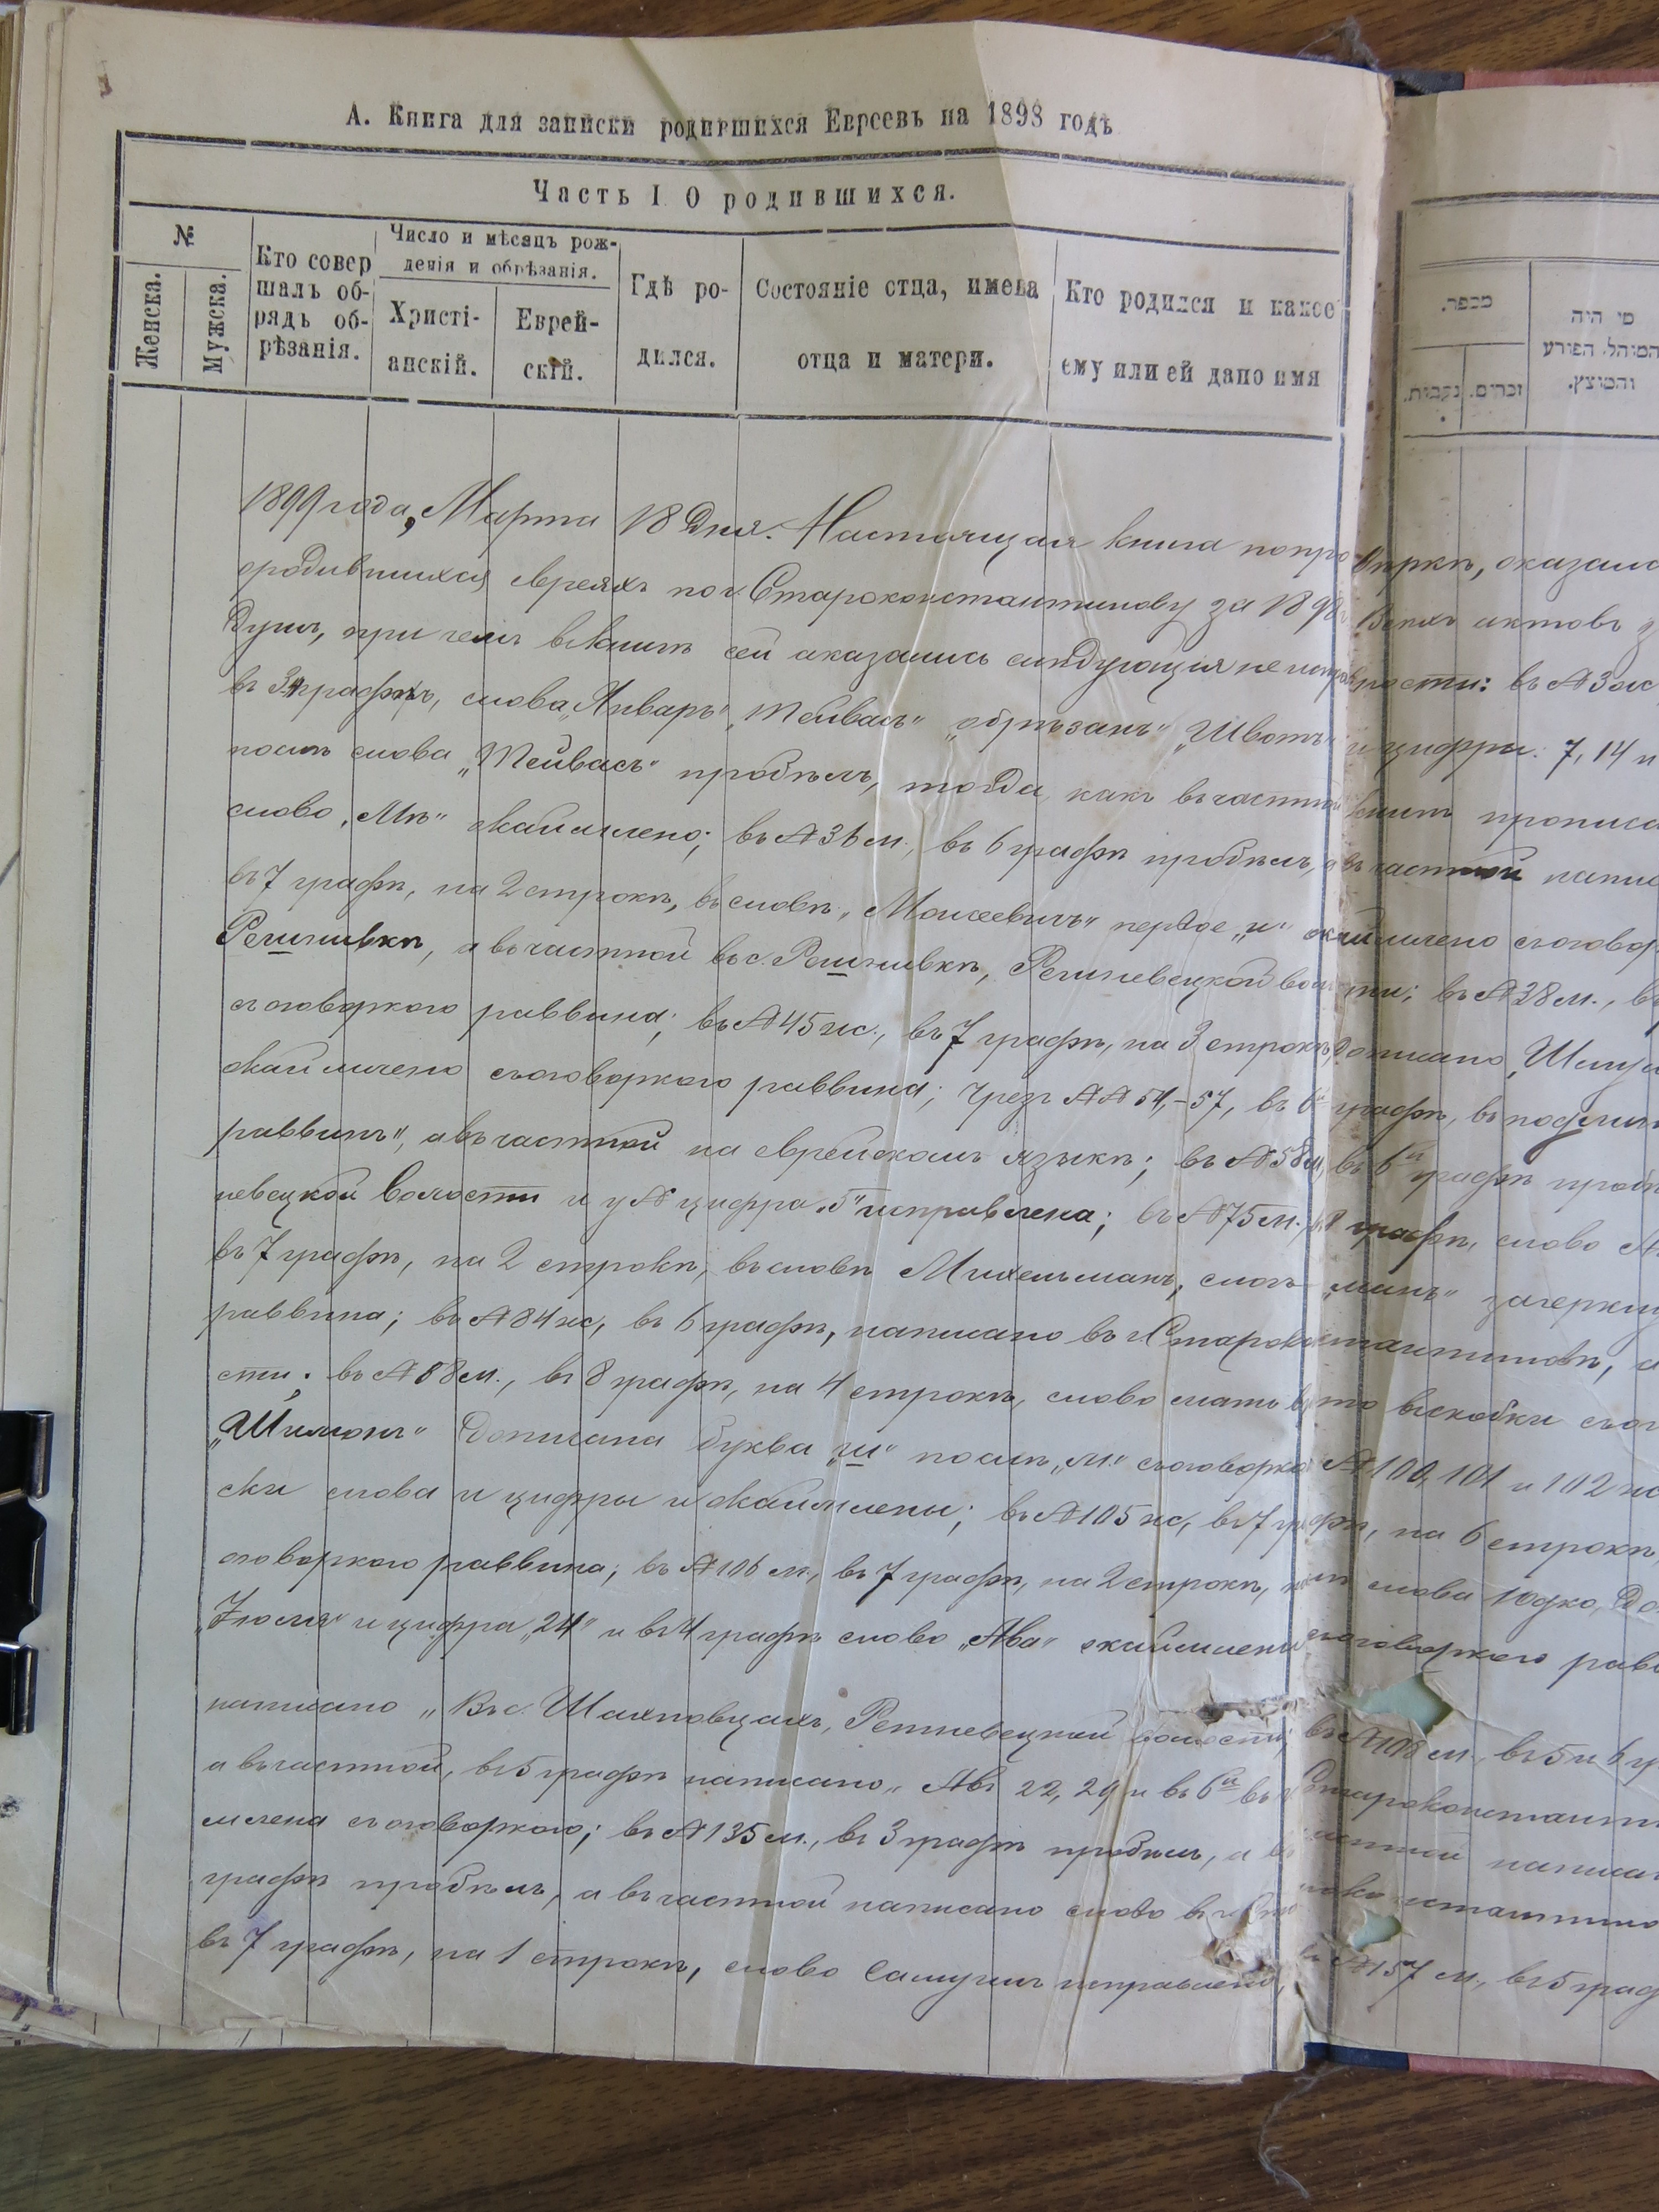 А. Книга для записки родившихся Евреевъ на 1898 годъ
Часть I О родившихся.
№
Женска.
Мужска.
Кто совер
шалъ об-
рядъ об-
рѣзанія.
Число и мѣсяцъ рож-
денія и обрѣзанія.
Христі-
анскій.
Еврей-
скій.
Гдѣ ро-
дился.
Состояніе отца, имена
отца и матери.
Кто родился и какое
ему или ей дано имя
מספר.
נקבות.
זכרים.
מי היה
המוהל, הפורע
והמוצץ.
1899 года, Марта 18 дня. Настоящая книга по провѣркѣ, оказалас
о родившихся евреяхъ по г. Староконстантинову за 1898 г. Всѣхъ актовъ
душъ, при чемъ въ книгѣ сей оказались слѣдующія неисправности: въ № 3 ж
въ 3 графѣ, слова "Январь" "Тейвасъ" "обрѣзанъ" "Шватъ" и цифры: 7, 14 и
послѣ слова "Тейвасъ" пробѣлъ, тогда, какъ въ частной книгѣ прописа
слово "Мѣ" окаймлено; въ № 36 м., въ 6 графѣ пробѣлъ, а въ частной напис
въ 7 графѣ, на 2 строкѣ, въ словѣ "Моисеевичъ" первое "и" окаймлено съ оговор
Решнивкѣ, а въ частной въ с. Решнивкѣ, Решневецкой волости; въ № 38 м., въ
съ оговоркою раввина; въ № 45 ж., въ 7 графѣ, на 3 строкѣ, дописано "Шмул
окаймлено съ оговоркою раввина; чрезъ №№ 54,-57, въ 6й графѣ, въ подлин
раввинъ", а въ частной на еврейскомъ языкѣ; въ № 58 м, въ 6й графѣ проб
невецкой волости и у № цифра "5" исправлена; въ № 75 м., въ 8 графѣ, слово
въ 7 графѣ, на 2 строкѣ, въ словѣ Михельманъ, слогъ "манъ" зачеркну
раввина; въ № 84 ж, въ 6 графѣ, написано въ г. Староконстантиновѣ, а
сти; въ № 88 м., въ 8 графѣ, на 4 строкѣ, слово мать взято въ скобки съ ог
"Шимонъ" дописана буква "ш" послѣ "м" съ оговоркой № 100, 101 и 102 ж
ски слова и цифры и окаймлены; въ № 105 ж, въ 7 графѣ, на 6 строкѣ,
оговоркою раввина; въ № 106 м., въ 7 графѣ, на 2 строкѣ, послѣ слова Юдко, до
"Іюля" и цифра "24" и въ 4 графѣ слово "Ава" окаймлены съ оговоркою равв
написано "въ с. Шахновцахъ, Решневецкой волости; въ № 108 м., въ 5 и 6 г
а въ частной, въ 5 графѣ написано "Авъ 22, 29 и въ 6й въ г Староконстант
млена съ оговоркою; въ № 135 м., въ 3 графѣ пробѣлъ, а въ частной написан
графѣ пробѣлъ, а въ частной написано слово въ г.
въ 7 графѣ, на 1 строкѣ, слово Самуилъ исправлено, въ № 157 м., въ 5 граф